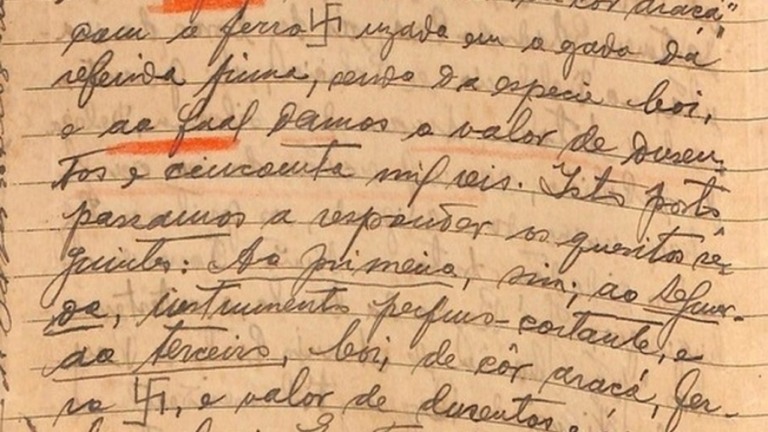 côr araçá"
com o ferro 卐 uzado em o gado da
referida firma, sendo da especie boi,
e ao qual damos o valor de duzen-
tos e cincoenta mil reis. Isto posto
passamos a responder os quesitos se-
guintes: Ao primeiro, sim; ao segun-
do, instrumento perfuro-cortante, e
ao terceiro, boi, de côr araçá, fer-
ro 卐, e valor de duzentos e